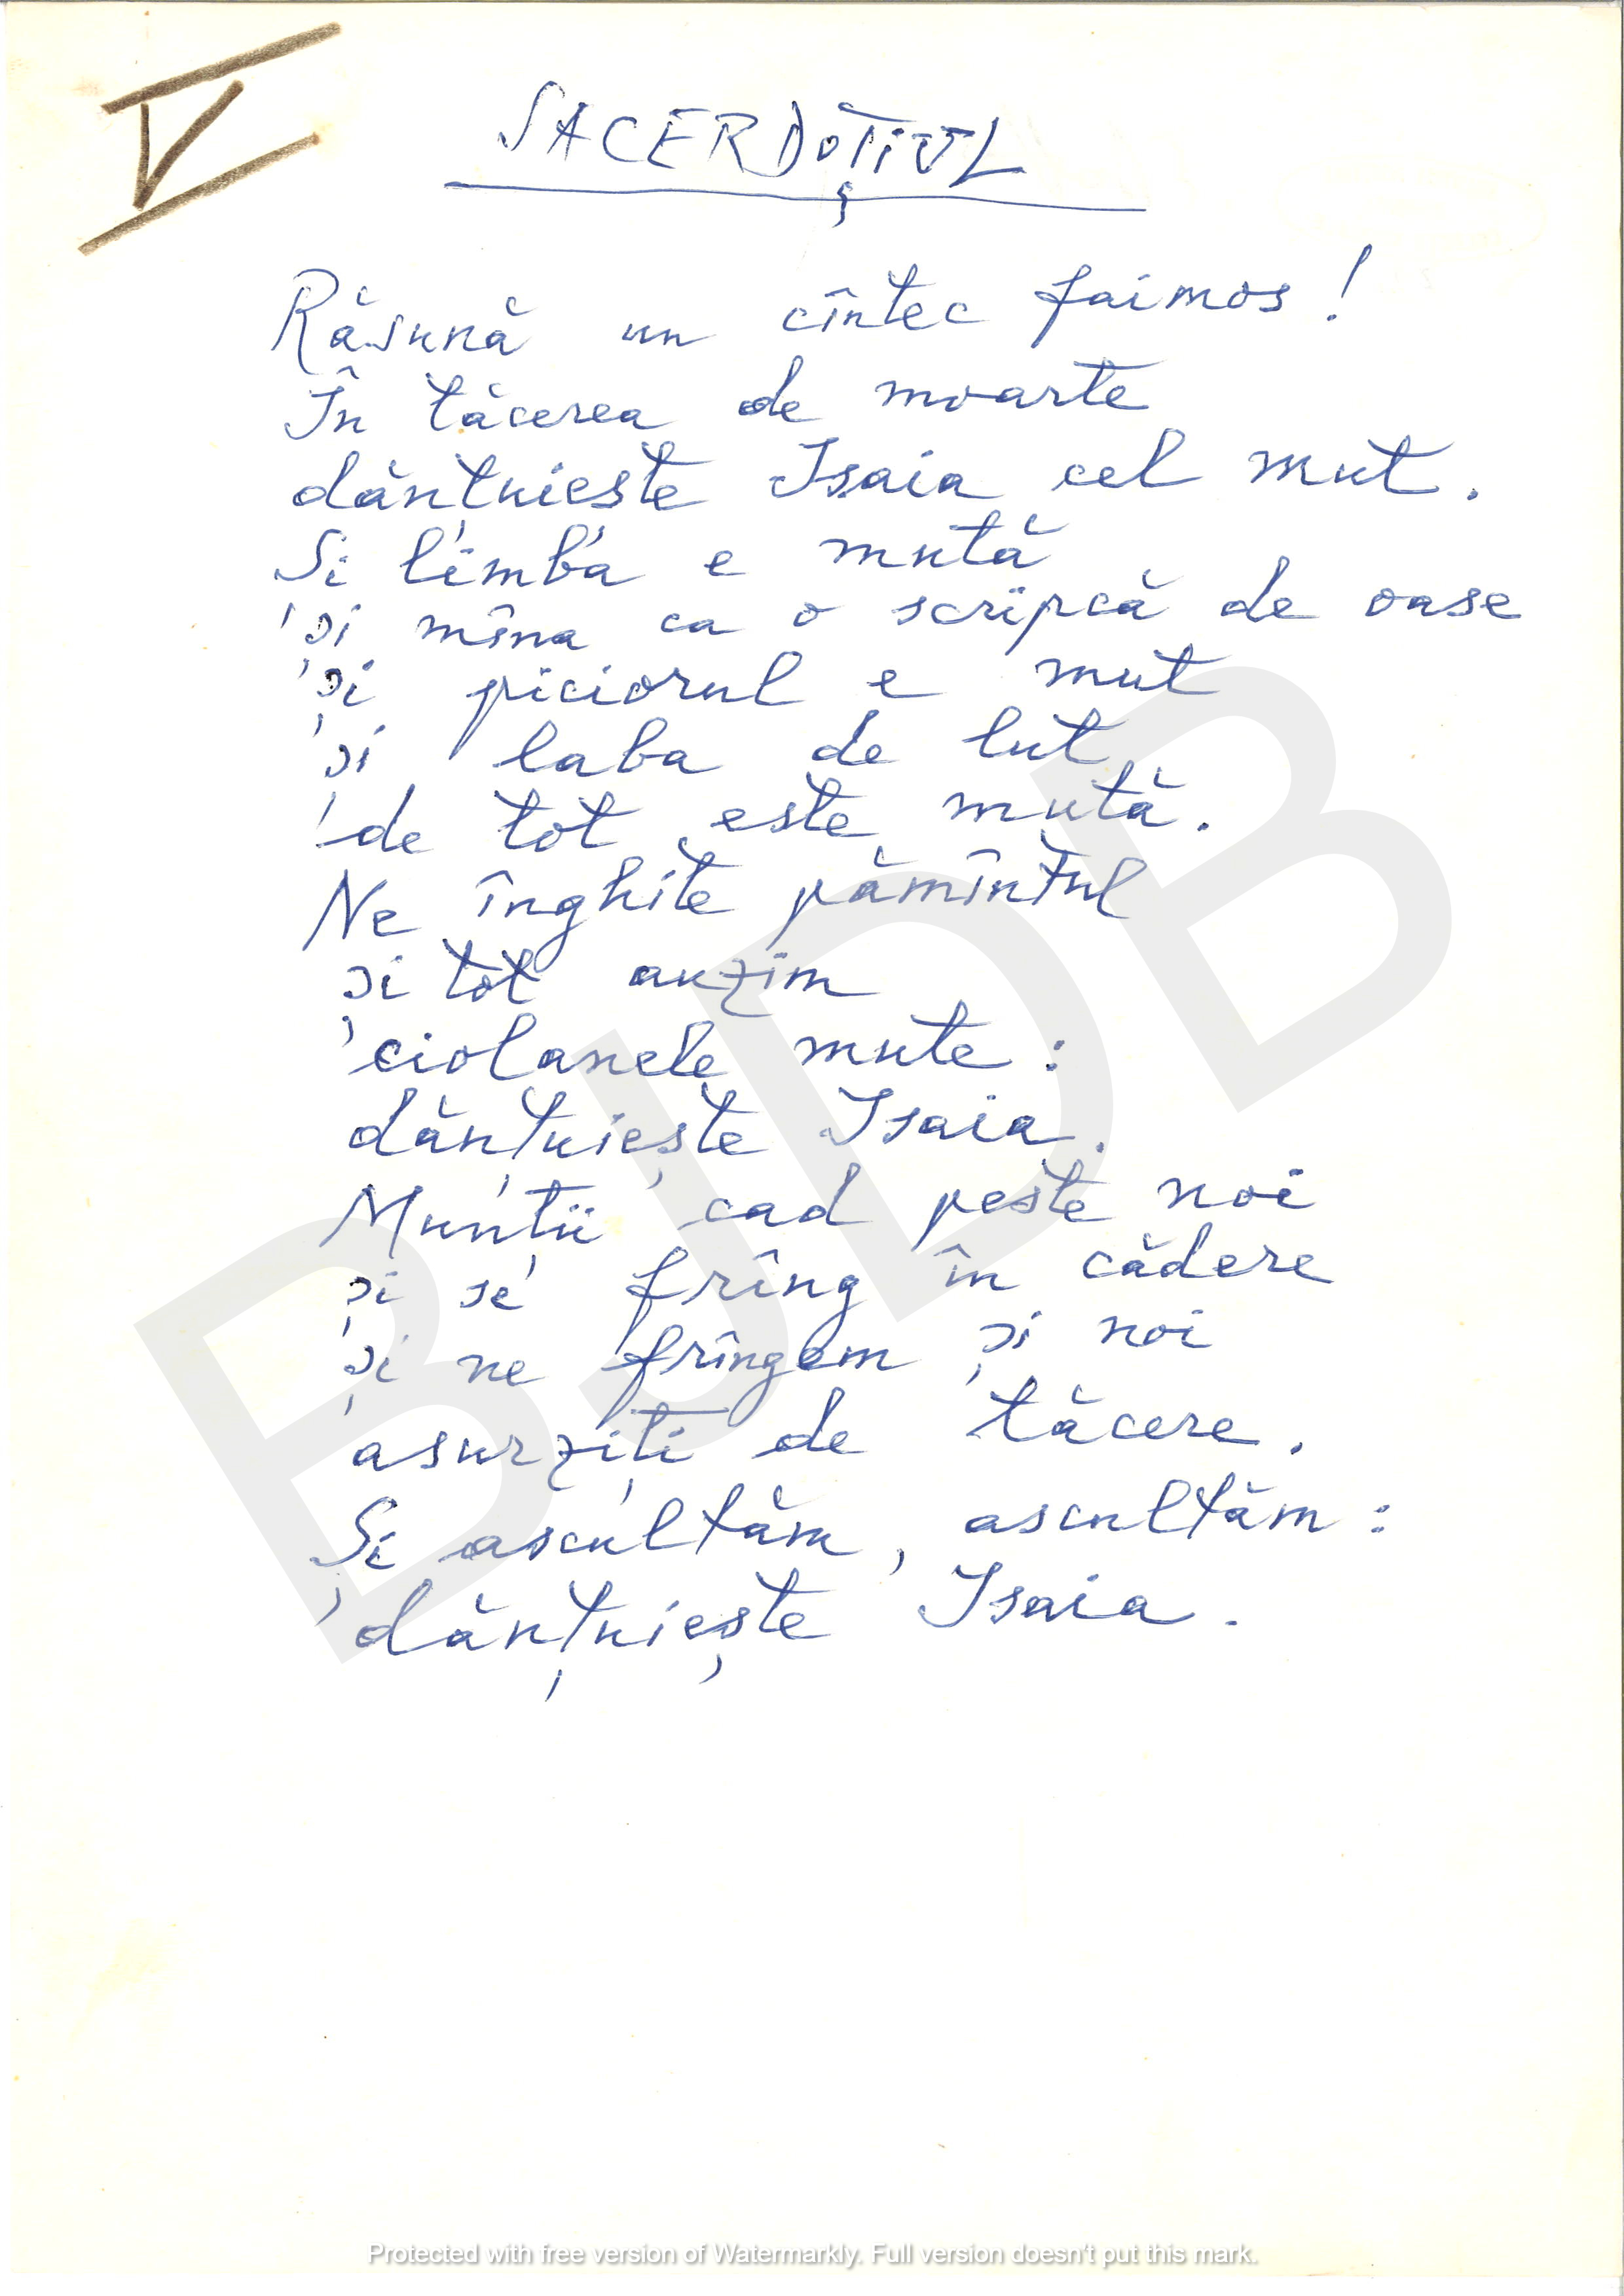 V
SACERDOȚIUL
Răsună un cîntec faimos!
În tăcerea de moarte
dănțuiește Isaia cel mut.
Și limba e mută
și mîna ca o scripcă de oase
și piciorul e mut
și laba de lut
de tot este mută.
Ne înghite pămîntul
și tot auzim
ciolanele mute:
dănțuiește Isaia.
Munții cad peste noi
și se frîng în cădere
și ne frîngem și noi
asurziți de tăcere.
Și ascultăm, ascultăm:
dănțuiește Isaia.
BJDB
Protected with free version of Watermarkly. Full version doesn't put this mark.